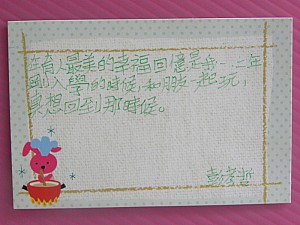 在育人最美的幸福回憶是我一二年
剛入學的時候,和朋友一起玩,
真想回到那時候。
彭孝哲